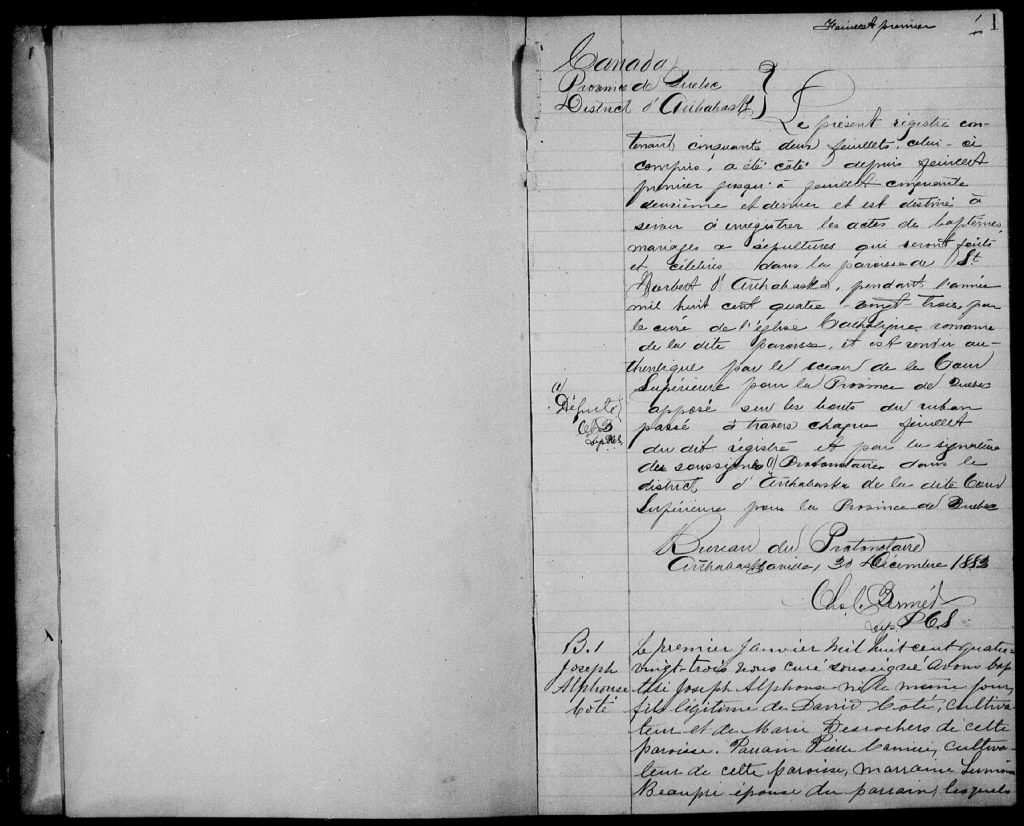 Feuillet premier
1
Canada
Province de Quebec
District d'Arthabaska
Le présent régistre con-
tenant cinquante deux feuillets, celui-ci
compris, a été côté depuis feuillet
premier jusqu'à feuillet cinquante
deuxième et dernier et est destiné à
servir à enregistrer les actes de baptêmes,
mariages & sépultures qui seront faits
et célébrés dans la paroisse de St
Norbert d'Arthabaska, pendant l'année
mil huit cent quatre-vingt-trois, par
le curé de l'église Catholique romaine
de la dite paroisse, et est rendu au-
thentique par le sceau de la Cour
Supérieure pour la Province de Quebec
apposé sur les bouts du ruban
passé à travers chaque feuillet
du dit régistre et par la signature
du soussigné (1) Protonotaire dans le
district d'Arthabaska de la dite Cour
Supérieure pour la Province de Quebec
(1)
Député
Bureau du Protonotaire
Arthabaskaville, 30 Décembre 1882
Dep P C S
B.1
Joseph
Alphonse
Côté
Le premier Janvier Mil huit cent quatre-
vingt-trois nous curé soussigné avons bap
tisé Joseph Alphonse né le même jour,
fils légitime de David Côté, cultiva-
teur et de Marie Desrochers de cette
paroisse. Parrain Pierre Camiré, cultiva-
teur de cette paroisse, marraine
Beaupré épouse du parrain, lesquels